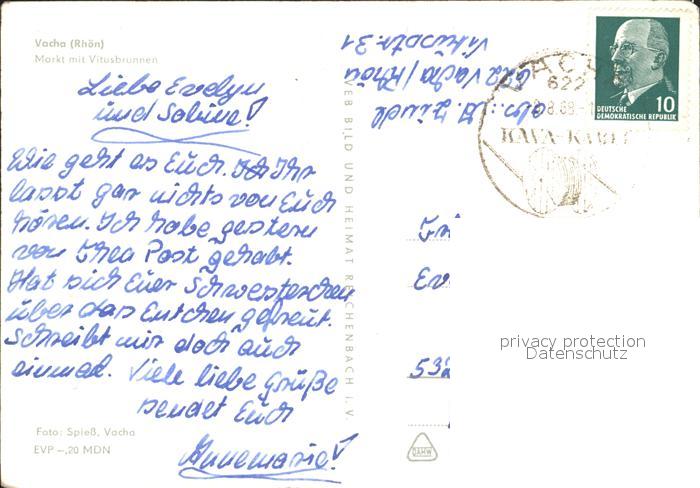 Vacha (Rhön)
Markt mit Vitusbrunnen
Liebe Evelyn
und Sabine!
Wie geht es Euch. Ihr
lasst gar nichts von Euch
hören. Ich habe gestern
von Thea Post gehabt.
Hat sich Euer Schwesterchen
über das Entchen gefreut.
Schreibt mir doch auch
einmal. Viele liebe Grüße
sendet Euch
Annemarie!
Foto: Spieß, Vacha
EVP –,20 MDN
VEB BILD UND HEIMAT REICHENBACH i. V.
Abs.: A.
622 Vacha/Rhön
Vitusstr. 31
VACHA
622
KALI-
10
DEUTSCHE
DEMOKRATISCHE REPUBLIK
Ev
532
privacy protection
Datenschutz
DAMW